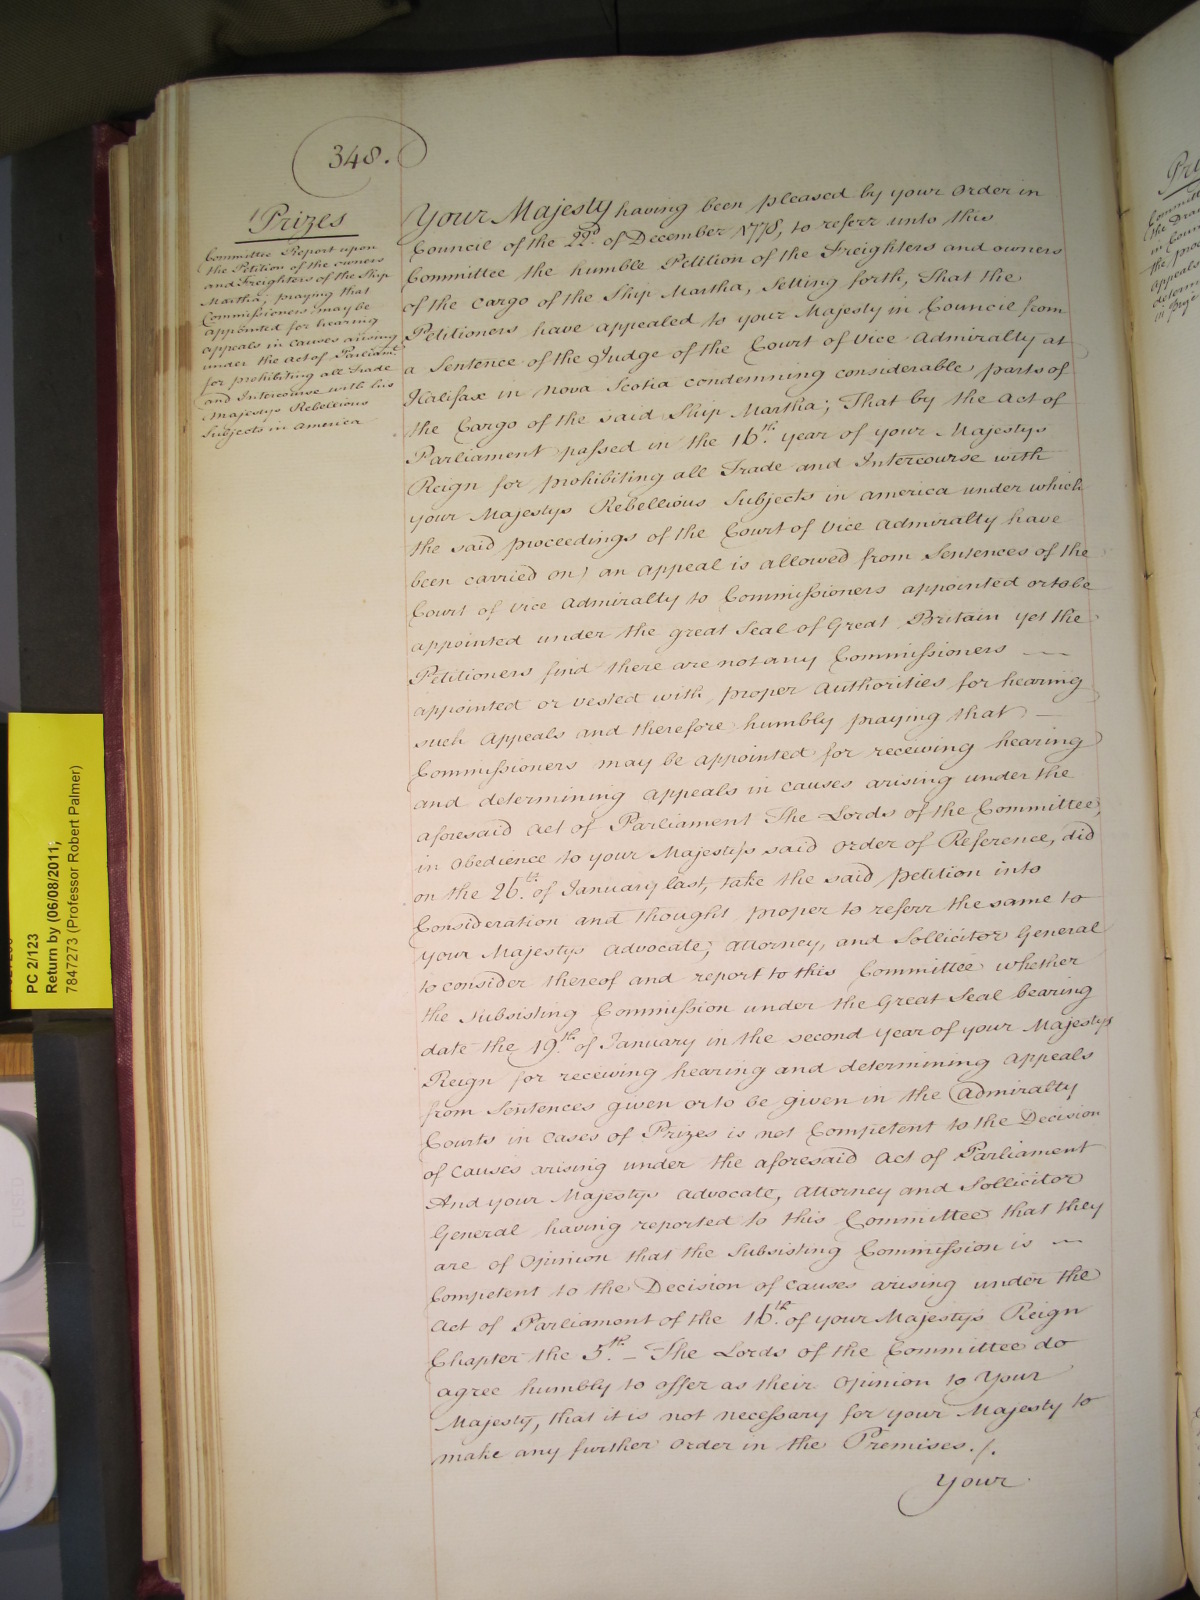 348.
Prizes
Committee Report upon
the Petition of the owners
and Freighters of the Ship
Martha; praying that
Commissioners may be
appointed for hearing
appeals in causes arising
under the act of Parliamt.
for prohibiting all Trade
and Intercourse with his
Majestys Rebellious
Subjects in America
Your Majesty having been pleased by your order in
Council of the 22d. of December 1778, to referr unto this
Committee the humble Petition of the Freighters and owners
of the Cargo of the Ship Martha, Setting forth, That the
Petitioners have appealed to your Majesty in Council from
a Sentence of the Judge of the Court of Vice Admiralty at
Halifax in Nova Scotia condemning considerable parts of
the Cargo of the said Ship Martha; That by the Act of
Parliament passed in the 16th. year of your Majestys
Reign for prohibiting all Trade and Intercourse with
your Majestys Rebellious Subjects in America under which
the said proceedings of the Court of Vice Admiralty have
been carried on) an appeal is allowed from Sentences of the
Court of Vice Admiralty to Commissioners appointed or to be
appointed under the great Seal of Great Britain yet the
Petitioners find there are not any Commissioners —
appointed or vested with proper authorities for hearing
such Appeals and therefore humbly praying that —
Commissioners may be appointed for receiving hearing
and determining Appeals in causes arising under the
aforesaid Act of Parliament The Lords of the Committee,
in obedience to your Majestys said Order of Reference, did
on the 26th. of January last, take the said petition into
Consideration and thought proper to referr the same to
your Majestys Advocate, Attorney, and Sollicitor General
to consider thereof and report to this Committee whether
the subsisting Commission under the Great Seal bearing
date the 19th. of January in the second year of your Majestys
Reign for receiving hearing and determining appeals
from Sentences given or to be given in the Admiralty
Courts in Cases of Prizes is not Competent to the Decision
of causes arising under the aforesaid Act of Parliament
And your Majestys Advocate, Attorney and Sollicitor
General having reported to this Committee that they
are of Opinion that the Subsisting Commission is —
Competent to the Decision of causes arising under the
Act of Parliament of the 16th. of your Majestys Reign
Chapter the 5th. — The Lords of the Committee do
agree humbly to offer as their Opinion to Your
Majesty, that it is not necessary for your Majesty to
make any further order in the Premises. /.
Your
PC 2/123
Return by (06/08/2011;
7847273 (Professor Robert Palmer)